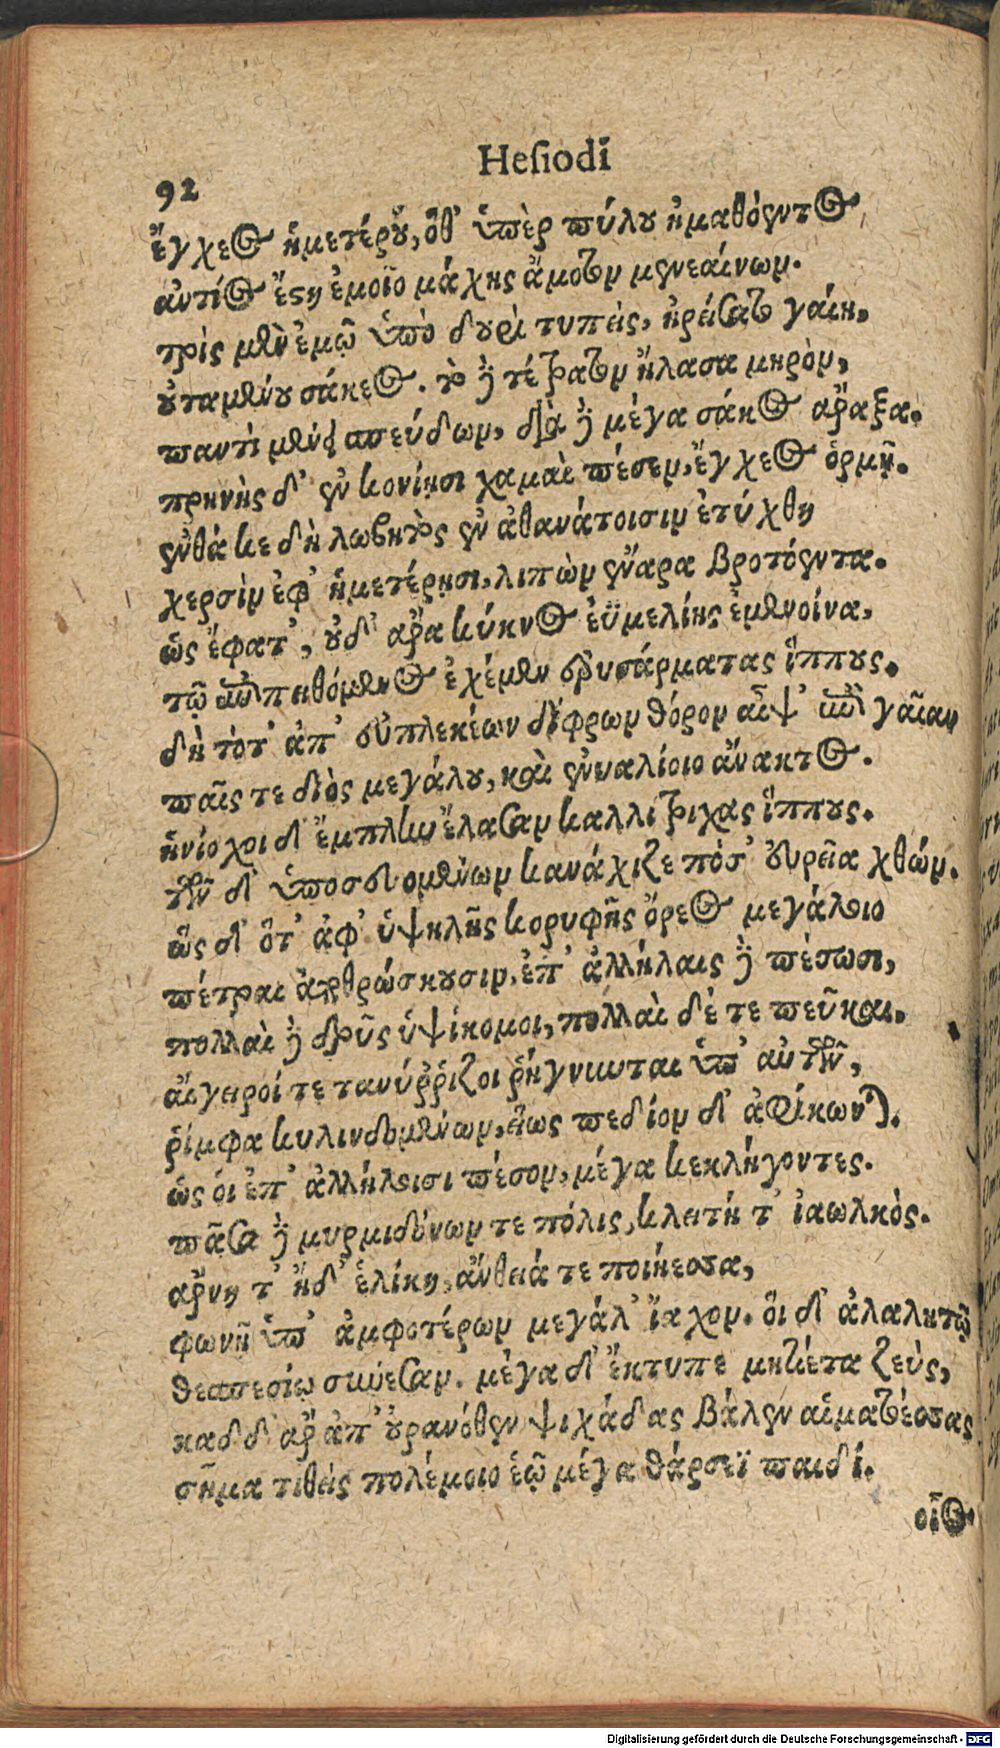 92
Hesiodi
ἔγχεος ἡμετέρου, ὅθ' ὑπὲρ πύλου ἠμαθόεντος
ἀντίος ἔστη ἐμοῖο μάχης ἄμοτον μενεαίνων.
τρὶς μὲν ἐμῷ ὑπὸ δουρὶ τυπεὶς, ἠρείσατο γαίῃ,
οὐταμένου σάκεος. τὸ δὲ τέτρατον ἤλασα μηρὸν,
παντὶ μένει σπεύδων, διὰ δὲ μέγα σάκος ἄραξα.
πρηνὴς δ' ἐν κονίῃσι χαμαὶ πέσεν, ἔγχεος ὁρμῇ.
ἐνθά κε δὴ λωβητὸς ἐν ἀθανάτοισιν ἐτύχθη
χερσὶν ἐφ' ἡμετέρῃσι, λιπὼν ἔναρα βροτόεντα.
ὣς ἔφατ', οὐδ' ἄρα κύκνος ἐϋμελίης ἐμενοίνα,
τῷ ἐπιπειθόμενος ἐχέμεν ἐρυσάρματας ἵππους.
δὴ τότ' ἀπ' εὐπλεκέων δίφρων θόρον αἶψ' ἐπὶ γαῖαν
παῖς τε διὸς μεγάλου, καὶ ἐνυαλίοιο ἄνακτος.
ἡνίοχοι δ' ἔμπλην ἔλασαν καλλίτριχας ἵππους.
τῶν δ' ὑποσευομένων κανάχιζε πόσ' εὐρεῖα χθών.
ὣς δ' ὅτ' ἀφ' ὑψηλῆς κορυφῆς ὄρεος μεγάλοιο
πέτραι ἀποθρώσκουσιν, ἐπ' ἀλλήλαις δὲ πέσωσι,
πολλαὶ δὲ δρῦς ὑψίκομοι, πολλαὶ δέ τε πεῦκαι.
αἴγειροί τε τανύῤῥιζοι ῥήγνυνται ὑπ' αὐτῶν,
ῥίμφα κυλινδομένων, εἵως πεδίον δ' ἀφίκωνται.
ὣς οἱ ἐπ' ἀλλήλοισι πέσον, μέγα κεκλήγοντες.
πᾶσα δὲ μυρμιδόνων τε πόλις, κλειτή τ' ἰαωλκὸς.
ἄρνη τ' ἠδ' ἑλίκη, ἄνθειά τε ποιήεσσα,
φωνῇ ὑπ' ἀμφοτέρων μεγάλ' ἴαχον. οἳ δ' ἀλαλητῷ
θεσπεσίῳ σύνεσαν. μέγα δ' ἔκτυπε μητίετα ζεὺς,
καδδ' ἄρ' ἀπ' οὐρανόθεν ψιχάδας βάλεν αἱματοέσσας
σῆμα τιθεὶς πολέμοιο ἑῷ μέγα θάρσεϊ παιδί.
οἷος
Digitalisierung gefördert durch die Deutsche Forschungsgemeinschaft - DFG